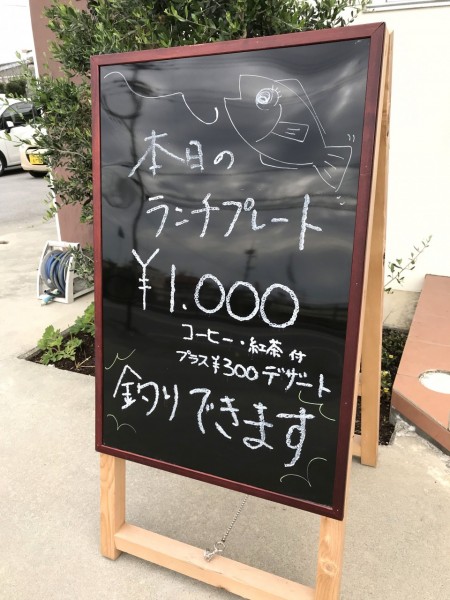 本日の
ランチプレート
¥1.000
コーヒー・紅茶 付
プラス¥300デザート
釣りできます